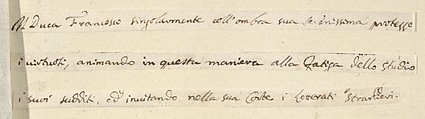 Il Duca Francesco singolarmente coll'ombra sua Serenissima protesse
i virtuosi, animando in questa maniera alla fatiga dello studio
i suoi sudditi, ed invitando nella sua Corte i Letterati Stranieri.